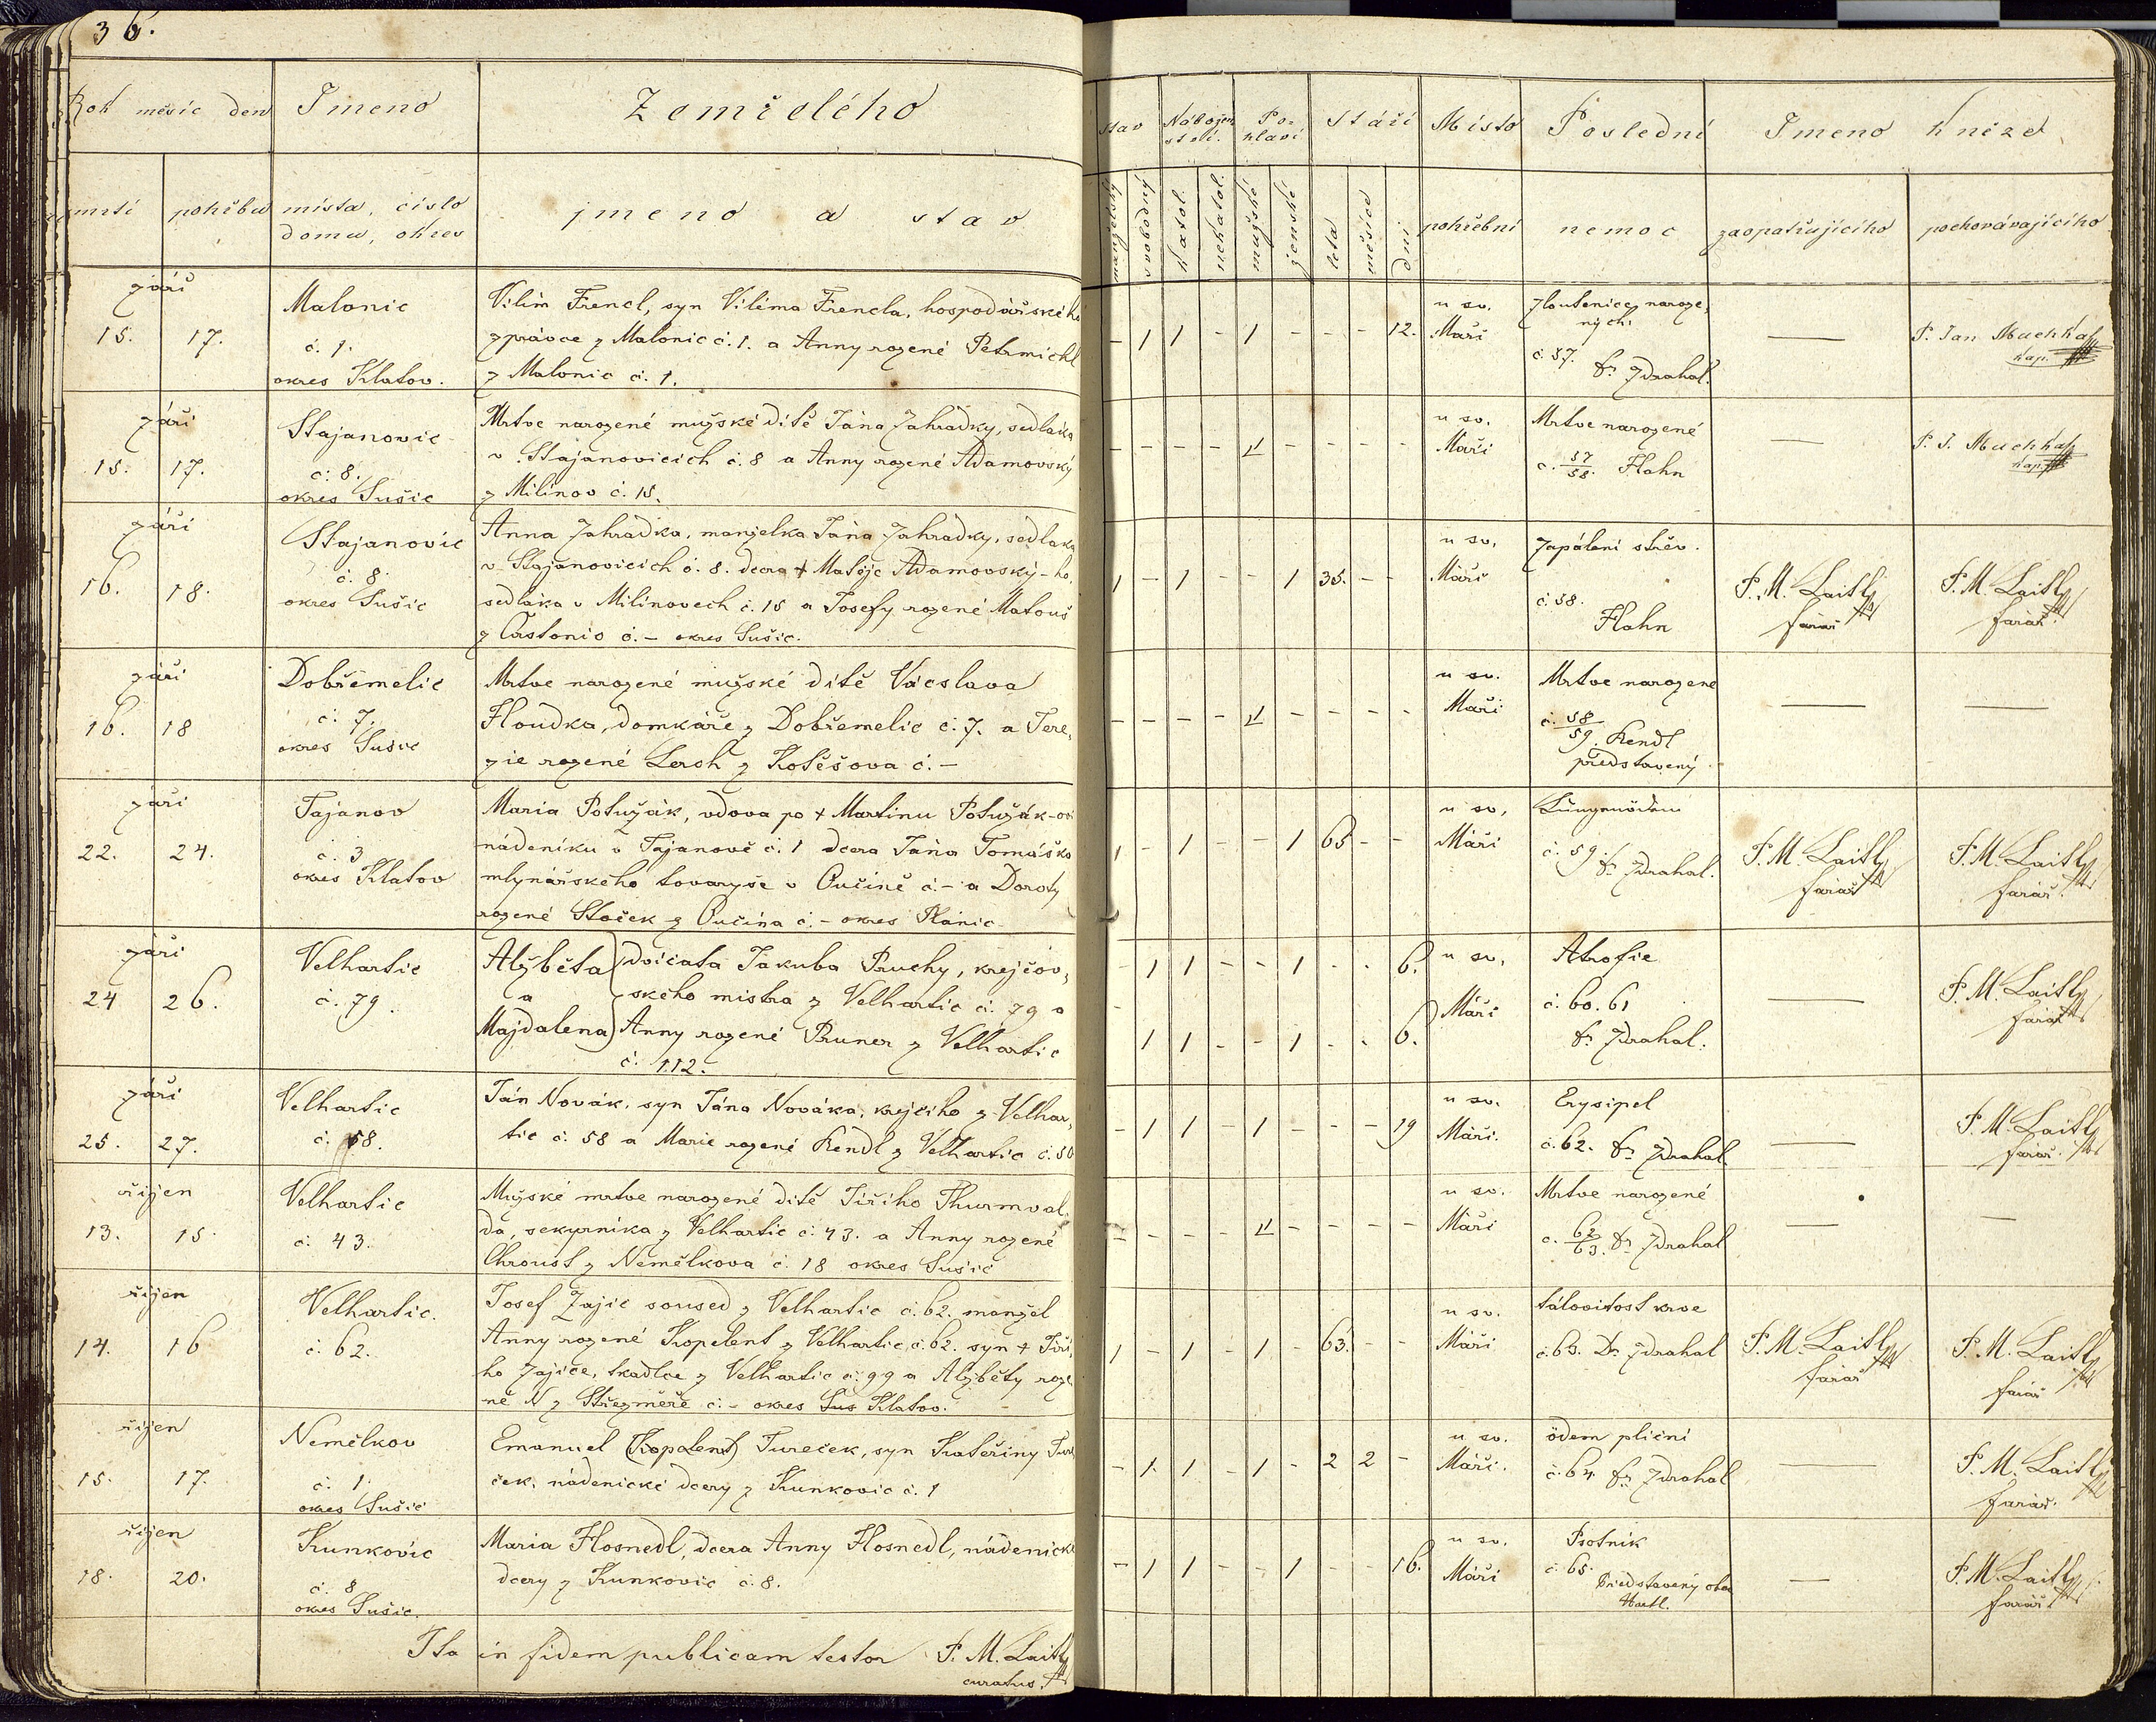 36.
Rok měsíc den Jmeno Zemřelého
stav Nábožen stvi. Po- hlaví Stáří Místo Poslední Jmeno kněze
úmrtí pohřbu místa, číslo jmeno a stav
domu, okres
manželský svobodný katol. nekatol. mužské ženské leta měsíce dni pohřební nemoc zaopatřujícího pochovávajícího
září
15. 17. Malonic
č. 1.
okres Klatov.
Vilím Frencl, syn Viléma Frencla, hospodářského
zprávce z Malonic č. 1. a Anny rozené Petrmichl
z Malonic č. 1.
- 1 1 - 1 - - - 12.
u sv.
Máří
žloutenice naroze,
ných.
č. 57. Dr Zdrahal.
—
P. Jan Muchka
kap.
září
15. 17. Stajanovic
č. 8.
okres Sušic
Mrtvě narozené mužské dítě Jána Zahrádky, sedláka
v Stajanovicích č. 8 a Anny rozené Adamovský
z Milínov č. 15.
- - - - 1 - - - -
u sv.
Máří
Mrtvě narozené
č. 57/58. Hahn
—
P. J. Muchka
kap.
září
16. 18. Stajanovic
č. 8.
okres Sušic
Anna Zahrádka, manželka Jána Zahrádky, sedláka
v Stajanovicích č. 8. dcera + Matěje Adamovský-ho
sedláka v Milínovech č. 15 a Josefy rozené Matouš
z Čustonic č. - okres Sušic.
1 - 1 - - 1 35. - -
u sv.
Máří
Zapálení střev.
č. 58.
Hahn
P. M. Laitl
farář
P. M. Laitl
farář.
září
16. 18 Dobřemelic
č. 7.
okres Sušic
Mrtvě narozené mužské dítě Václava
Houdka, domkáře z Dobřemelic č. 7. a Tere,
zie rozené Lerch z Kotěšova č. -
- - - - 1 - - - -
u sv.
Máří
Mrtvě narozené
č. 58/59. Rendl
představený
—
—
září
22. 24. Tajanov
č. 3
okres Klatov
Maria Potužák, vdova po + Martinu Potužák-ovi
nádeníku v Tajanově č. 1 dcera Jána Tomáška
mlynářského tovaryše v Oučíně č. - a Doroty
rozené Stoček z Oučína č. - okres Plánic
1 - 1 - - 1 65 - -
u sv.
Máří
Lungenödem
č. 59. Dr Zdrahal.
P. M. Laitl
farář
P. M. Laitl
farář.
září
24 26. Velhartic
č. 79.
Alžběta dvíčata Jakuba Pruchy, krejčov,
a ského mistra z Velhartic č. 79 a
Majdalena Anny rozené Pruner z Velhartic
č. 112.
- 1 1 - - 1 - - 6.
- 1 1 - - 1 - - 6.
u sv.
Máří
Atrofie
č. 60. 61
Dr Zdrahal.
—
P. M. Laitl
farář
září
25. 27. Velhartic
č. 58.
Ján Novák, syn Jána Nováka, krejčího z Velhar,
tic č. 58 a Marie rozené Rendl z Velhartic č. 50
- 1 1 - 1 - - - 19
u sv.
Máří.
Erysipel
č. 62. Dr Zdrahal.
—
P. M. Laitl
farář.
říjen
13. 15. Velhartic
č. 43.
Mužské mrtvě narozené dítě Jiřího Thurmval,
da, sekyrníka z Velhartic č. 43. a Anny rozené
Chroust z Nemělkova č. 18 okres Sušic
- - - - 1 - - - -
u sv.
Máří
Mrtvě narozené
č. 62/63. Dr Zdrahal
—
—
říjen
14. 16 Velhartic.
č. 62.
Josef Zajíc soused z Velhartic č. 62. manžel
Anny rozené Kopelent z Velhartic č. 62. syn + Jiří,
ho Zajíce, tkadlce z Velhartic č. 99 a Alžběty roze,
né N z Střezměře č. - okres Sus Klatov.
1 - 1 - 1 - 63. - -
u sv.
Máří
tálovitost krve
č. 63. Dr Zdrahal
P. M. Laitl
farář
P. M. Laitl
farář
říjen
15. 17. Nemělkov
č. 1.
okres Sušic
Emanuel (Kopelent) Tureček, syn Kateřiny Ture
ček, nádenické dcery z Kunkovic č. 1
- 1 1 - 1 - 2 2 -
u sv.
Máří.
ödem plicní
č. 64 Dr Zdrahal
—
P. M. Laitl
farář.
říjen
18. 20. Kunkovic
č. 8
okres Sušic.
Maria Hosnedl, dcera Anny Hosnedl, nádenické
dcery z Kunkovic č. 8.
- 1 1 - - 1 - - 16.
u sv.
Máří
Psotník
č. 65.
Představený obce
Hartl.
—
P. M. Laitl
farář.
Ita in fidem publicam testor P. M. Laitl
curatus.